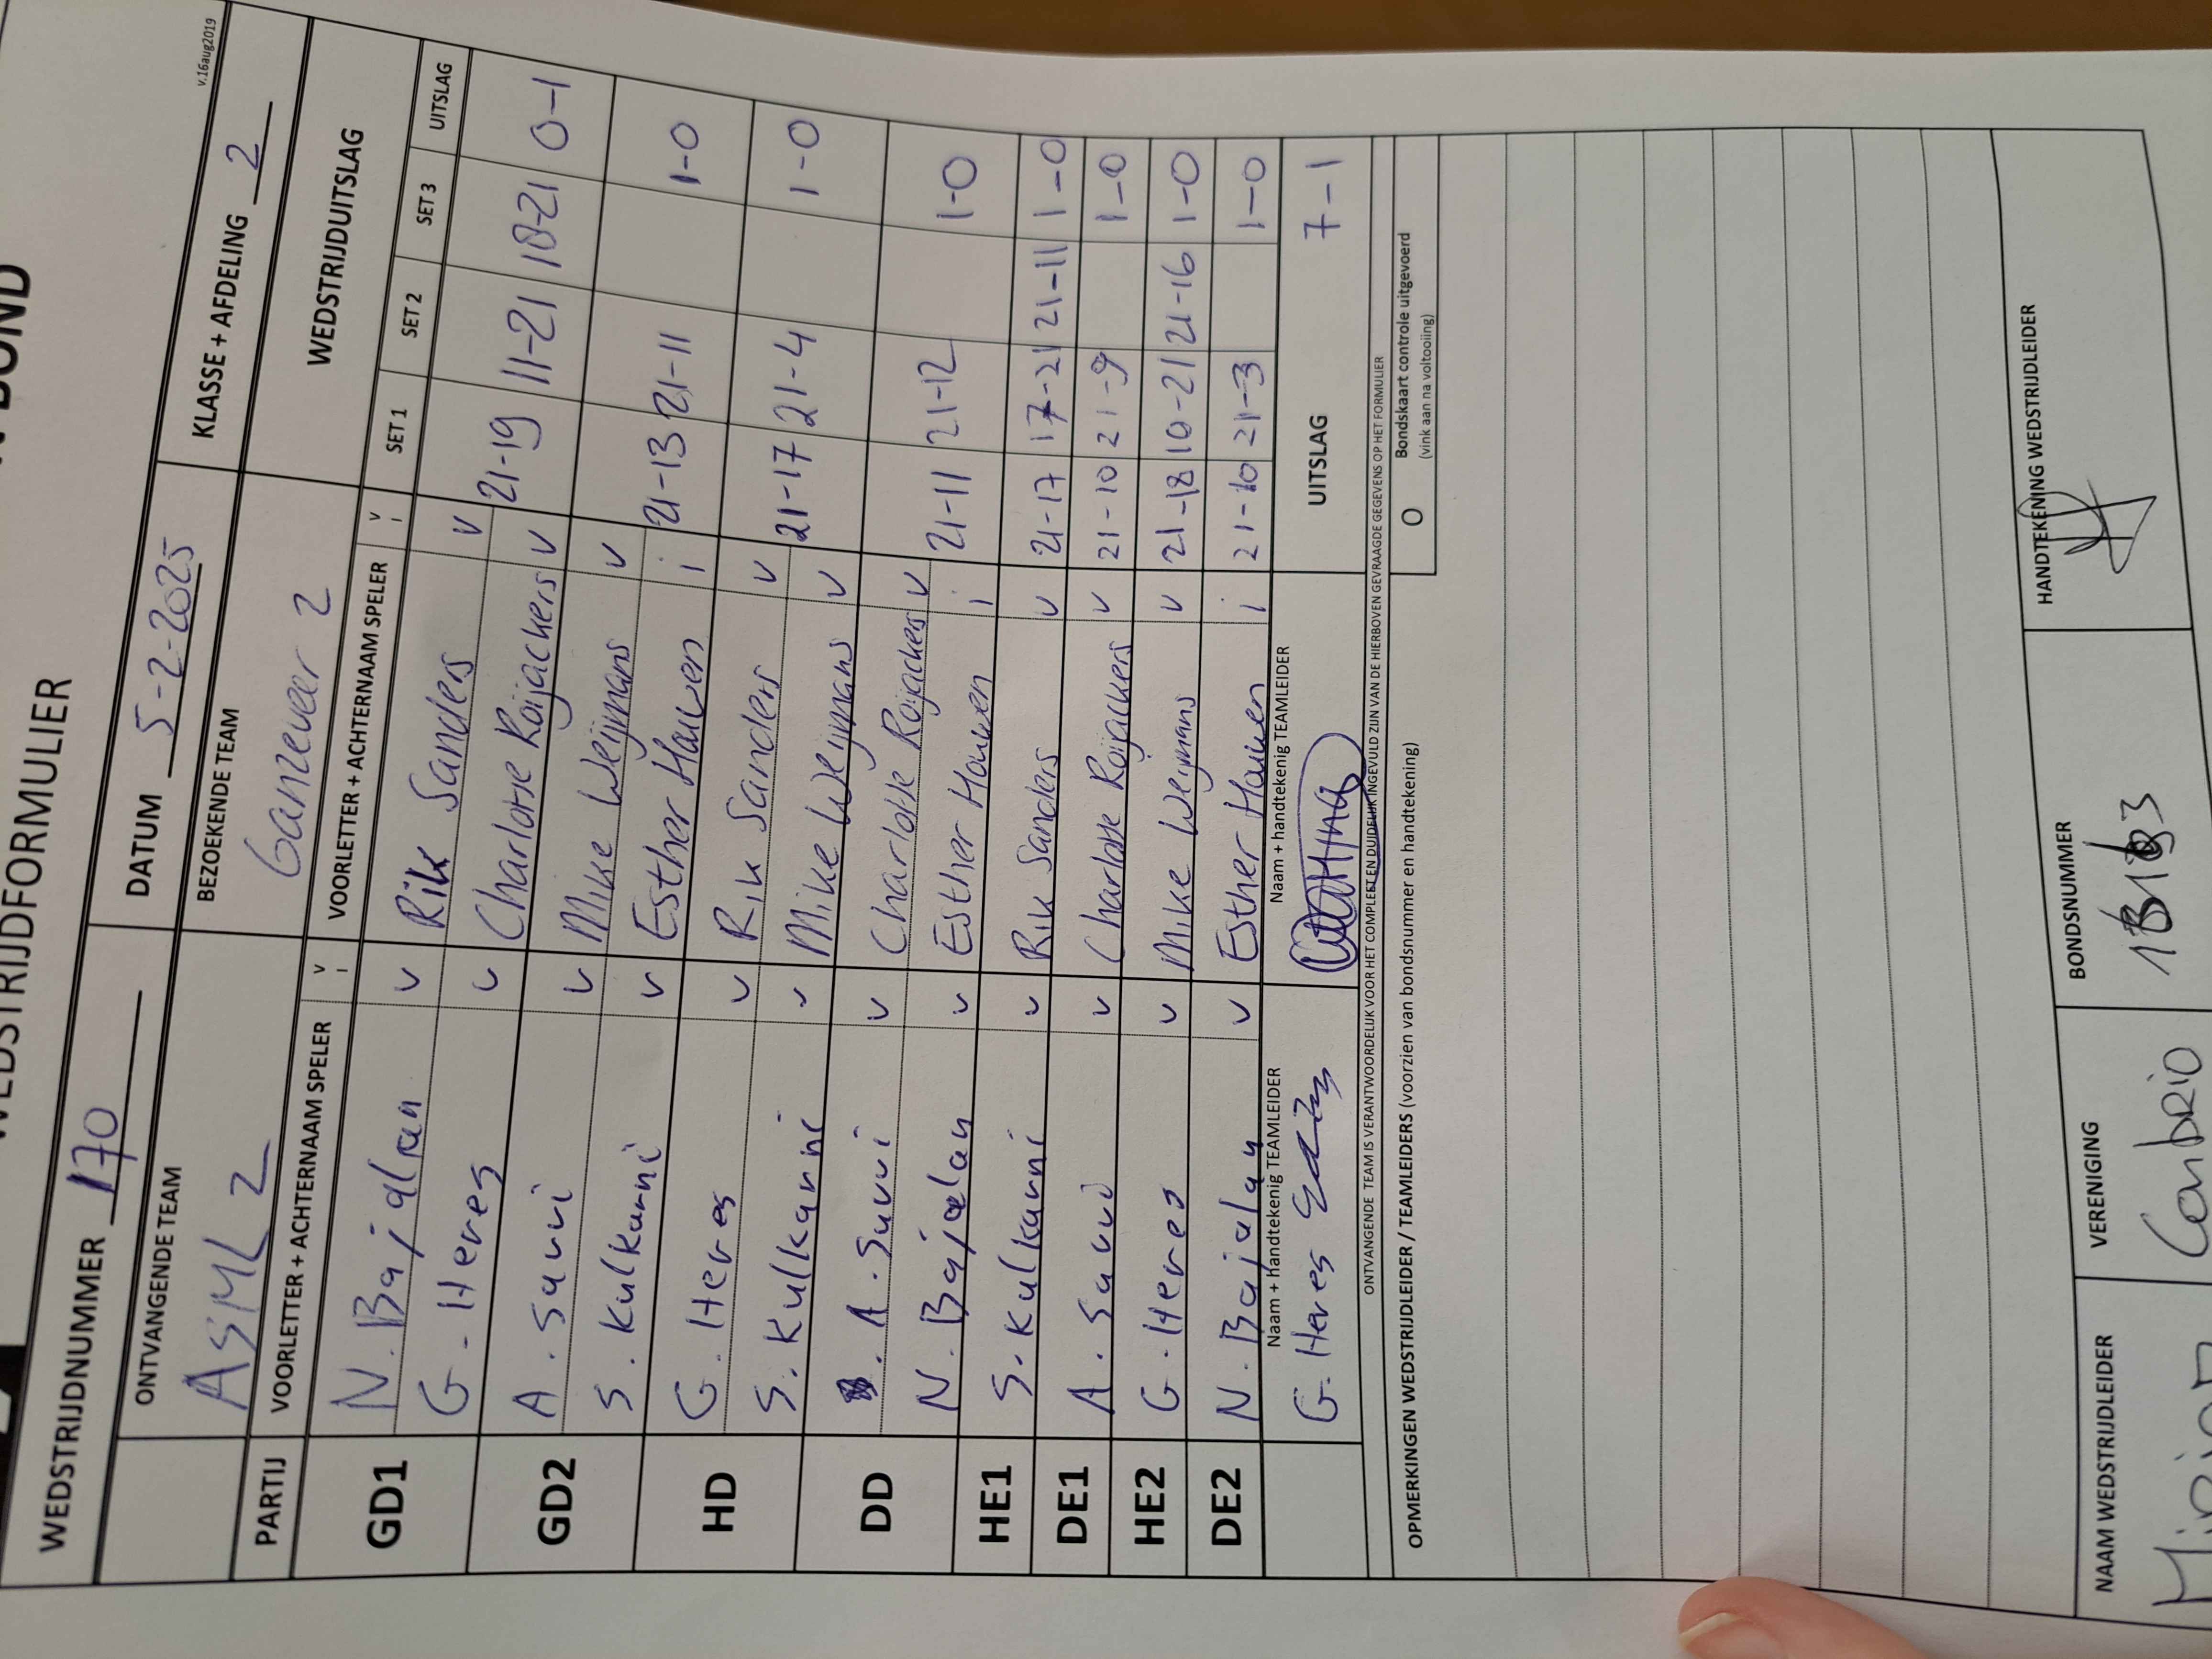 BOND
WEDSTRIJDFORMULIER
v.16aug2019
WEDSTRIJDNUMMER 170 DATUM 5-2-2025 KLASSE + AFDELING 2
ONTVANGENDE TEAM BEZOEKENDE TEAM
ASML 2 Ganzeveer 2 WEDSTRIJDUITSLAG
PARTIJ VOORLETTER + ACHTERNAAM SPELER V I VOORLETTER + ACHTERNAAM SPELER V I SET 1 SET 2 SET 3 UITSLAG
GD1 N. Bajalan v Rik Sanders v
G. Heres v Charlotte Roijackers v 21-19 11-21 18-21 0-1
GD2 A. Sauri v Mike Weijmans v
S. Kulkarni v Esther Hauwen i 21-13 21-11 1-0
HD G. Heres v Rik Sanders v
S. Kulkarni v Mike Weijmans v 21-17 21-4 1-0
DD A. Sauri v Charlotte Roijackers v
N. Bajalan v Esther Hauwen i 21-11 21-12 1-0
HE1 S. Kulkarni v Rik Sanders v 21-17 17-21 21-11 1-0
DE1 A. Sauri v Charlotte Roijackers v 21-10 21-9 1-0
HE2 G. Heres v Mike Weijmans v 21-18 10-21 21-16 1-0
DE2 N. Bajalan v Esther Hauwen i 21-10 21-3 1-0
Naam + handtekenig TEAMLEIDER Naam + handtekenig TEAMLEIDER
G. Heres UITSLAG 7-1
ONTVANGENDE TEAM IS VERANTWOORDELIJK VOOR HET COMPLEET EN DUIDELIJK INGEVULD ZIJN VAN DE HIERBOVEN GEVRAAGDE GEGEVENS OP HET FORMULIER
OPMERKINGEN WEDSTRIJDLEIDER / TEAMLEIDERS (voorzien van bondsnummer en handtekening) O Bondskaart controle uitgevoerd
(vink aan na voltooiing)
NAAM WEDSTRIJDLEIDER VERENIGING BONDSNUMMER HANDTEKENING WEDSTRIJDLEIDER
Conbrio